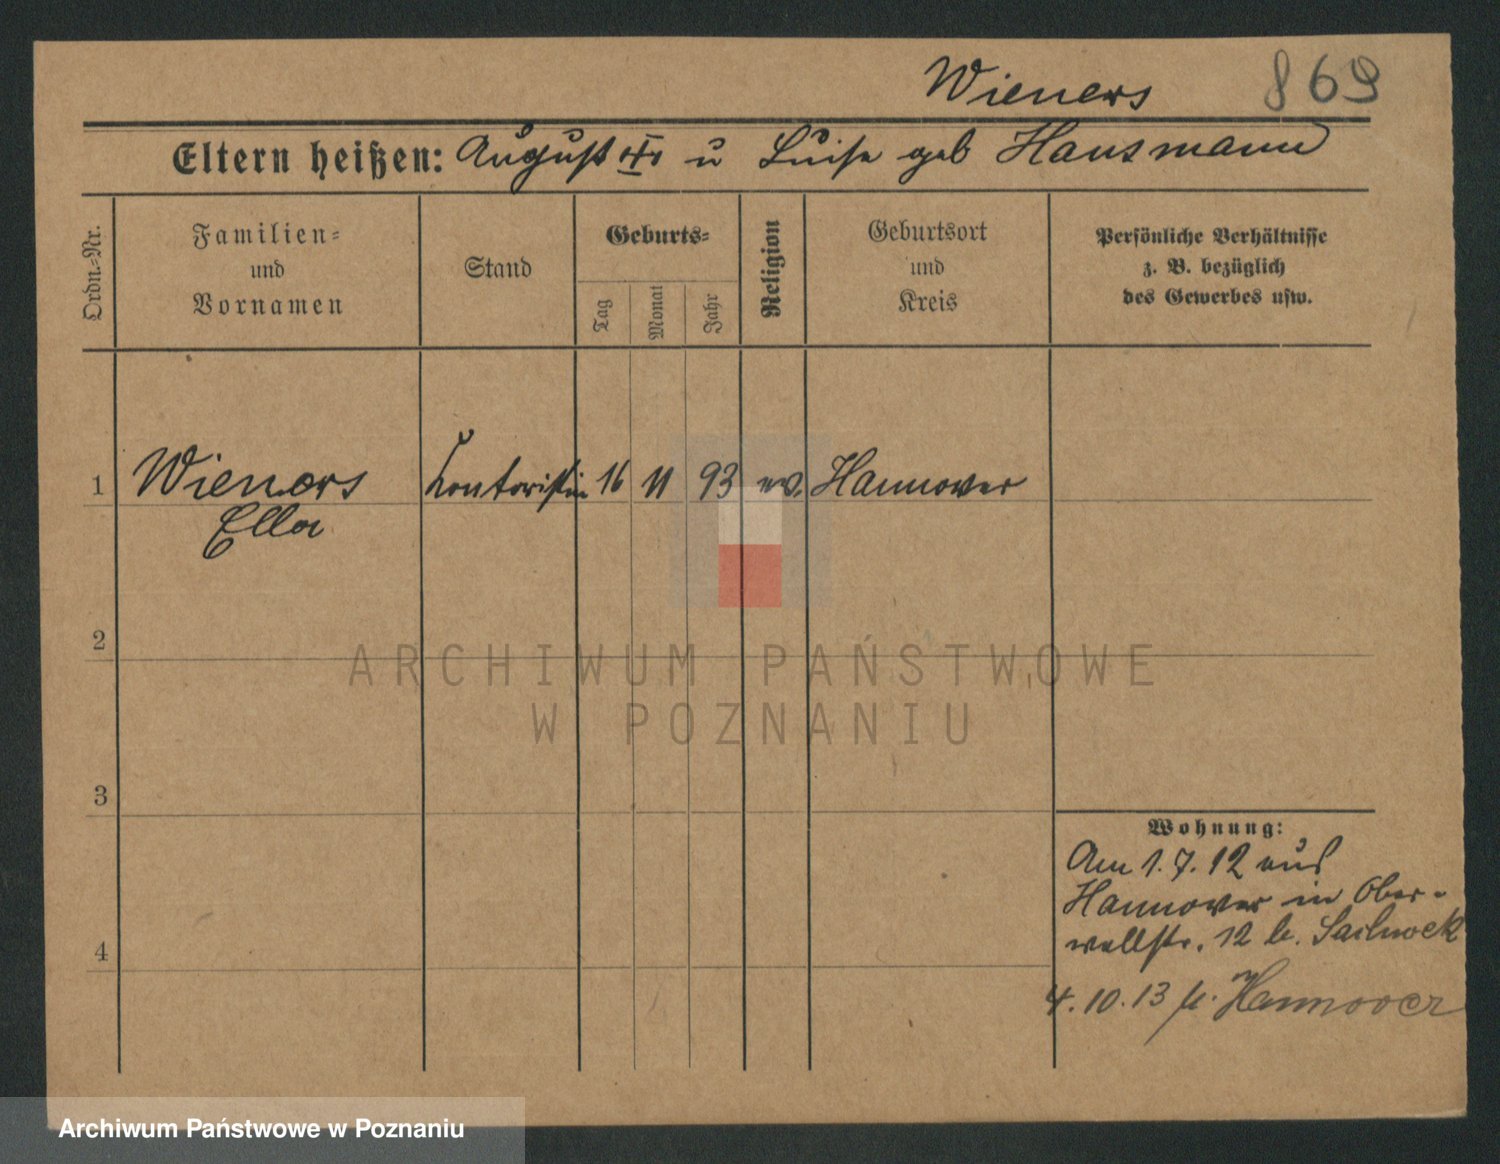 Wieners 869
Eltern heißen: August u Luise geb Hausmann
Ordn.-Nr.
Familien-
und
Vornamen
Stand
Geburts-
Tag
Monat
Jahr
Religion
Geburtsort
und
Kreis
Persönliche Verhältnisse
z. B. bezüglich
des Gewerbes usw.
1 Wieners Kontoristin 16 11 93 ev. Hannover
Ella
2
ARCHIWUM PAŃSTWOWE
W POZNANIU
3
Wohnung:
Am 1.7.12 aus
Hannover in Ober-
4 wallstr. 12 b.
4.10.13 n. Hannover
Archiwum Państwowe w Poznaniu